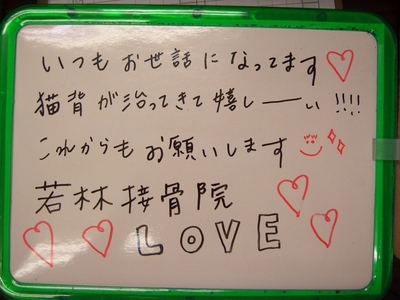 いつもお世話になってます♡
猫背が治ってきて嬉しーーい!!!!
これからもお願いします
若林接骨院
LOVE